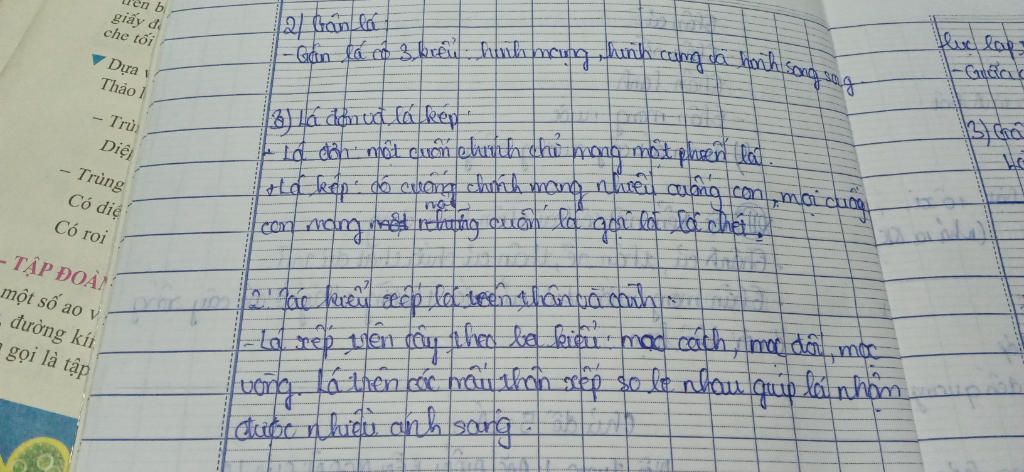 trên b
giấy đ
che tối
Dựa v
Thảo l
- Trù
Diệ
- Trùng
Có diệ
Có roi
- TẬP ĐOÀN
một số ao v
đường kín
gọi là tập
2) Gân lá
- Gân lá có 3 kiểu: hình mạng, hình cung và hình song song
3) Lá đơn và lá kép:
+ Lá đơn: một cuốn chính chỉ mang một phiến lá.
+ Lá kép: có cuống chính mang nhiều cuống con, mỗi cuống
con mang một những cuốn lá gọi là lá chét.
2. Các kiểu xếp lá trên thân và cành:
- Lá xếp trên cây theo ba kiểu: mọc cách, mọc đối, mọc
vòng. Lá trên các mấu thân xếp so le nhau giúp lá nhận
được nhiều ánh sáng.
3) Gâ